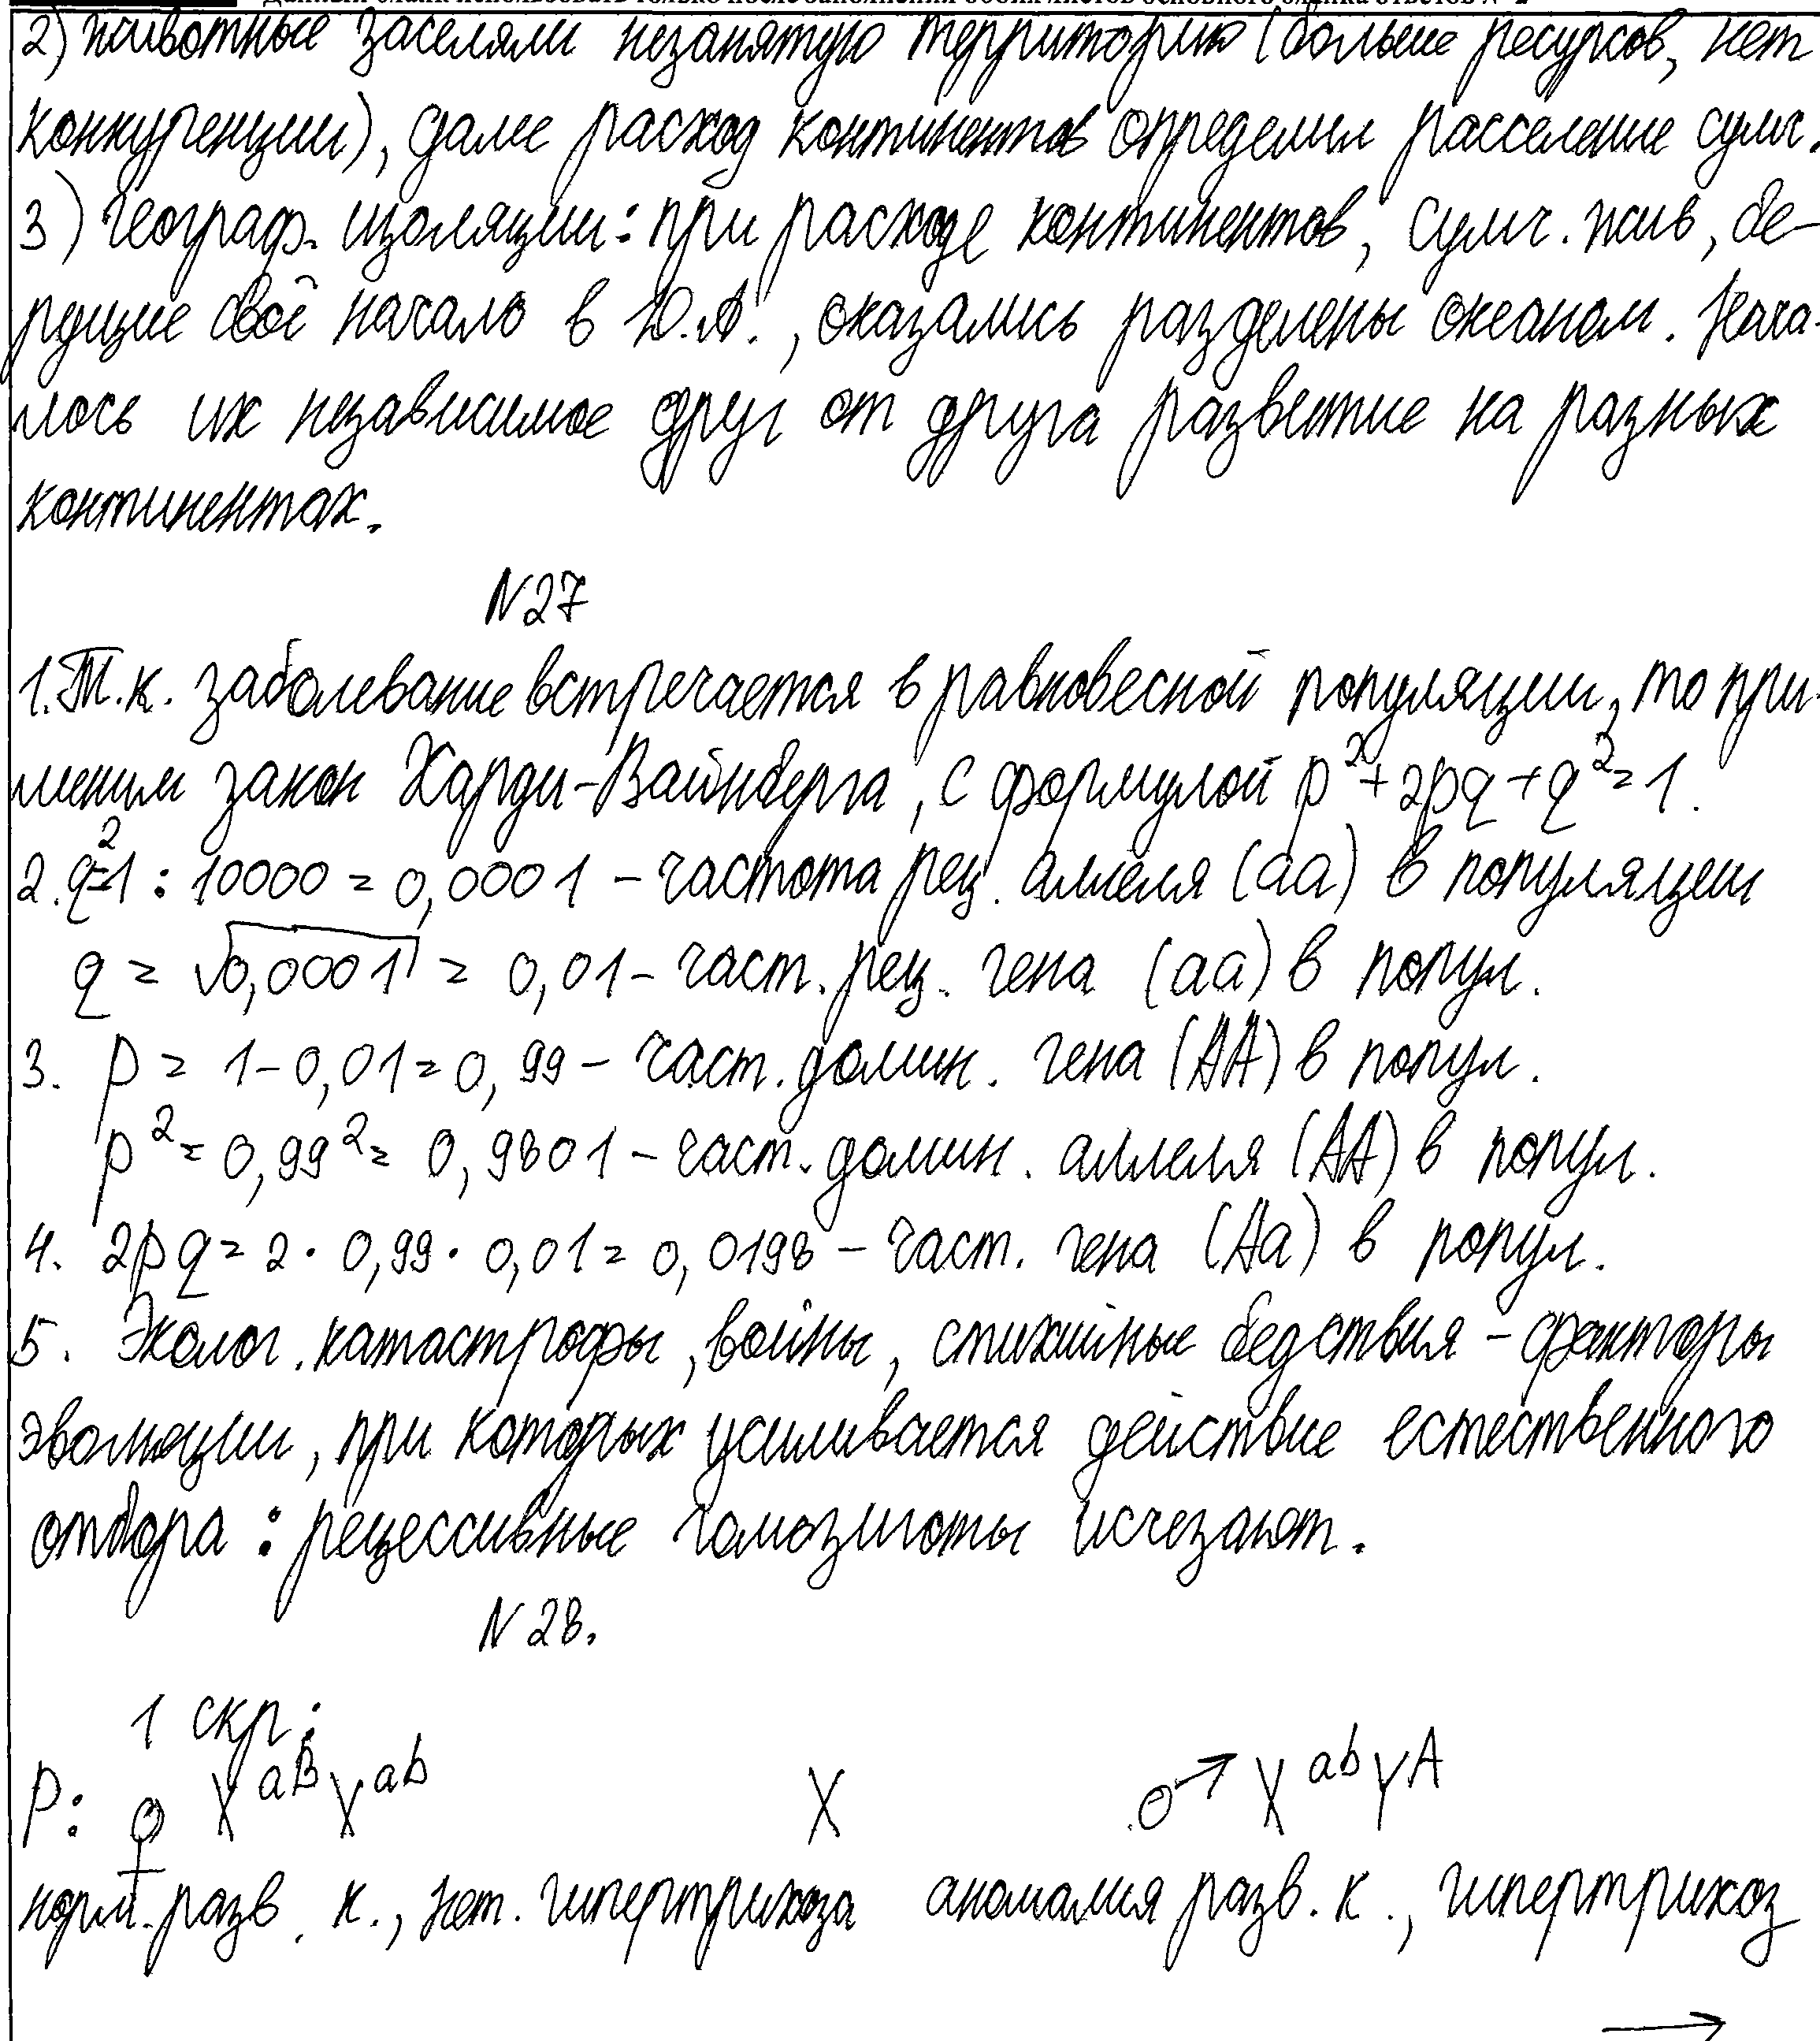 2) животные заселяли незанятую территорию (больше ресурсов, нет
конкуренции), далее расход континентов определил расселение сумч.
3) географ. изоляции: при расходе континентов, сумч. жив, бе-
рущие своё начало в Ю.А., оказались разделены океаном. Нача-
лось их независимое друг от друга развитие на разных
континентах.
N27
1. Т.к. заболевание встречается в равновесной популяции, то при-
меним закон Харди-Вайнберга, с формулой p²+2pq+q²=1.
2. q²=1:10000=0,0001 – частота рец. аллеля (aa) в популяции
q = √0,0001 = 0,01 – част. рец. гена (aa) в попул.
3. p = 1-0,01=0,99 – част. домин. гена (AA) в попул.
p²=0,99²=0,9801 – част. домин. аллеля (AA) в попул.
4. 2pq=2·0,99·0,01=0,0198 – част. гена (Aa) в попул.
5. Эколог. катастрофы, войны, стихийные бедствия – факторы
эволюции, при которых усиливается действие естественного
отбора: рецессивные гомозиготы исчезают.
N28.
1 скр:
P: ♀ X^aB X^ab X ♂ X^ab Y^A
норм. разв. к., нет. гипертрихоза аномалия разв. к., гипертрихоз
→